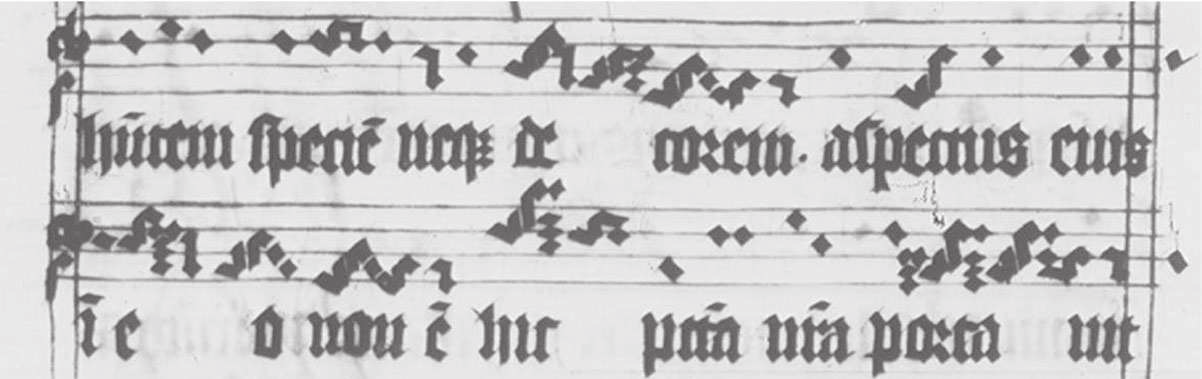 hñtem speciē neqꝫ de corem. aspectus eius
ī e o non ē hic pctā nr̄a porta uit